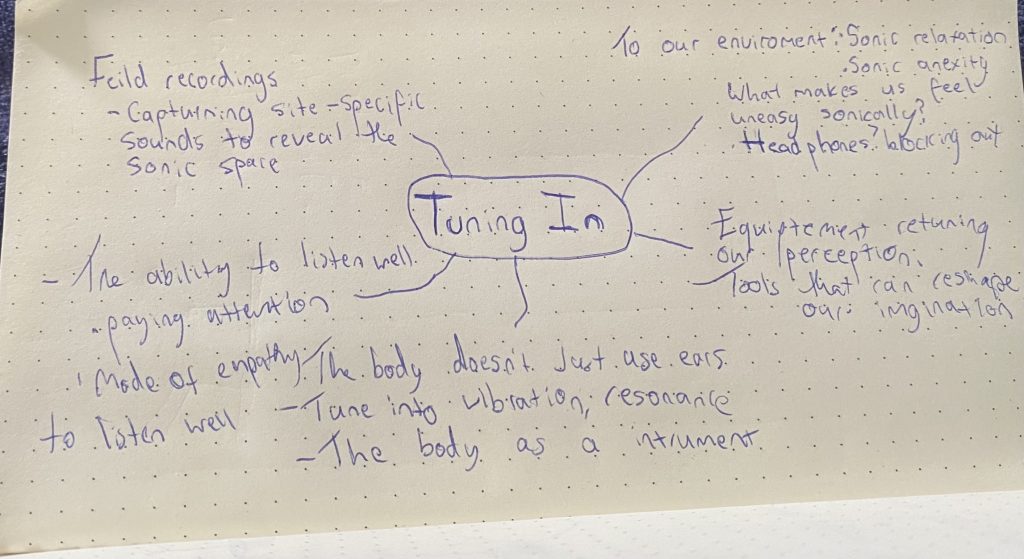 Feild recordings
- Capturning site-specific
sounds to reveal the
sonic space
To our enviroment? Sonic relaxation
. Sonic anexity
What makes us feel
uneasy sonically?
. Headphones? blocking out
Tuning In
Equiptement retuning
our perception.
Tools that can reshape
our imgination
- The ability to listen well.
. paying attention
Mode of empathy
to listen well
The body doesn't Just use ears.
- Tune into vibration, resonance
- The body as a intrument.